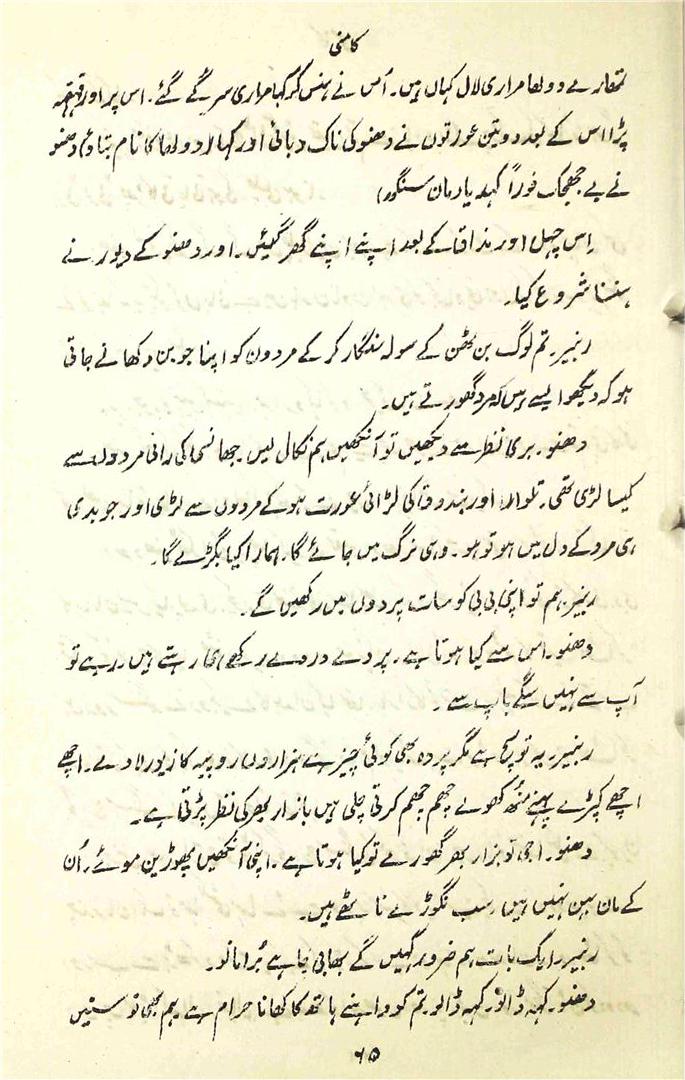 کامنی
تمھارے دولھا مراری لال کہاں ہیں۔ اُس نے ہنس کر کہا مراری سر گے گئے۔ اس پر اور قہقہہ
پڑا اس کے بعد دو تین عورتوں نے دھنو کی ناک دبائی اور کہا (دولھا کا نام بتاؤ) دھنو
نے بے جھجک فوراً کہدیا (مان سنگھ)
اِس چہل اور مذاق کے بعد اپنے اپنے گھر گئیں۔ اور دھنو کے دیور نے
ہنسنا شروع کیا۔
رنبیر۔ تم لوگ بن ٹھن کے سولہ سنگار کر کے مردون کو اپنا جوبنا دکھانے جاتی
ہو کہ دیکھو ایسے ہیں کہ مرد گھورتے ہیں۔
دھنو۔ بری نظر سے دیکھیں تو آنکھیں ہم نکال لیں۔ جھانسی کی رانی مردوں سے
کیسا لڑی تھی۔ تلوار اور بندوق کی لڑائی عورت ہو کے مردوں سے لڑی اور جو بدی
ہی مرد کے دل میں ہو تو ہو۔ وہی نرگ میں جائے گا۔ ہمارا کیا بگڑے گا۔
رنبیر۔ ہم تو اپنی بی بی کو سات پردوں میں رکھیں گے۔
دھنو۔ اس سے کیا ہوتا ہے۔ پردے وردے رکھے ہی رہتے ہیں۔ رہے تو
آپ سے نہیں سگے باپ سے۔
رنبیر۔ یہ تو سچ ہے مگر پردہ بھی کوئی چیز ہے ہزاروں روپیہ کا زیور لادے۔ اچھے
اچھے کپڑے پہنے منھ کھولے چھم چھم کرتی چلی ہیں بازار بھر کی نظر پڑتی ہے۔
دھنو۔ اجی تو بزار بھر گھورے تو کیا ہوتا ہے۔ اپنی آنکھیں پھوڑین موئے۔ اُن
کے مان بہن نہیں ہیں۔ سب نگوڑے ناٹھے ہیں۔
رنبیر۔ ایک بات ہم ضرور کہیں گے بھابی چاہے بُرا مانو۔
دھنو۔ کہہ ڈالو۔ کہہ ڈالو۔ تم کو داہنے ہاتھ کا کھانا حرام ہے ہم بھی تو سنیں
۶۵